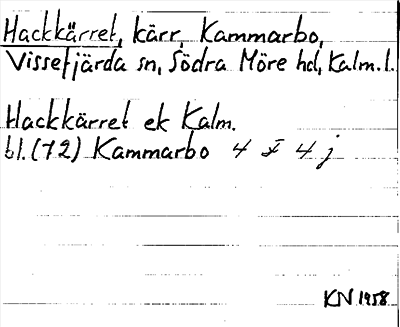 Hackkärret, kärr, Kammarbo,
Vissefjärda sn, Södra Möre hd, Kalm. l.
Hackkärret ek Kalm.
bl. (72) Kammarbo 4 I 4 j
KN 1958